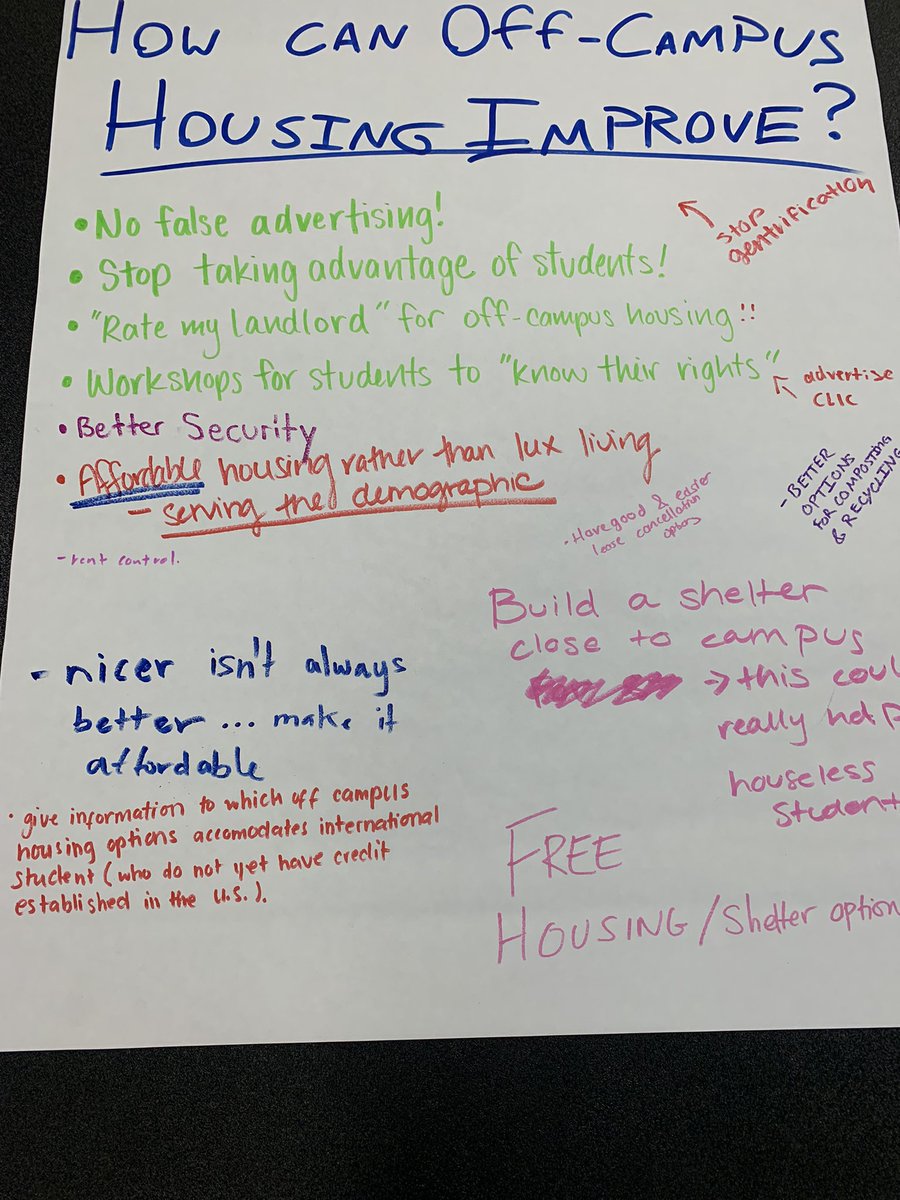 HOW CAN OFF-CAMPUS
HOUSING IMPROVE?
• No false advertising!
stop
gentrification
• Stop taking advantage of students!
• "Rate my landlord" for off-campus housing!!
• Workshops for students to "know their rights"
advertise
CLIC
• Better Security
• Affordable housing rather than lux living
- serving the demographic
- BETTER
OPTIONS
FOR COMPOSTING
& RECYCLING
- Have good & easier
lease cancellation
options
- rent control.
Build a shelter
close to campus
→ this coul
really help
houseless
Student
- nicer isn't always
better ... make it
affordable
• give information to which off campus
housing options accomodates international
student (who do not yet have credit
established in the U.S.).
FREE
HOUSING/Shelter option